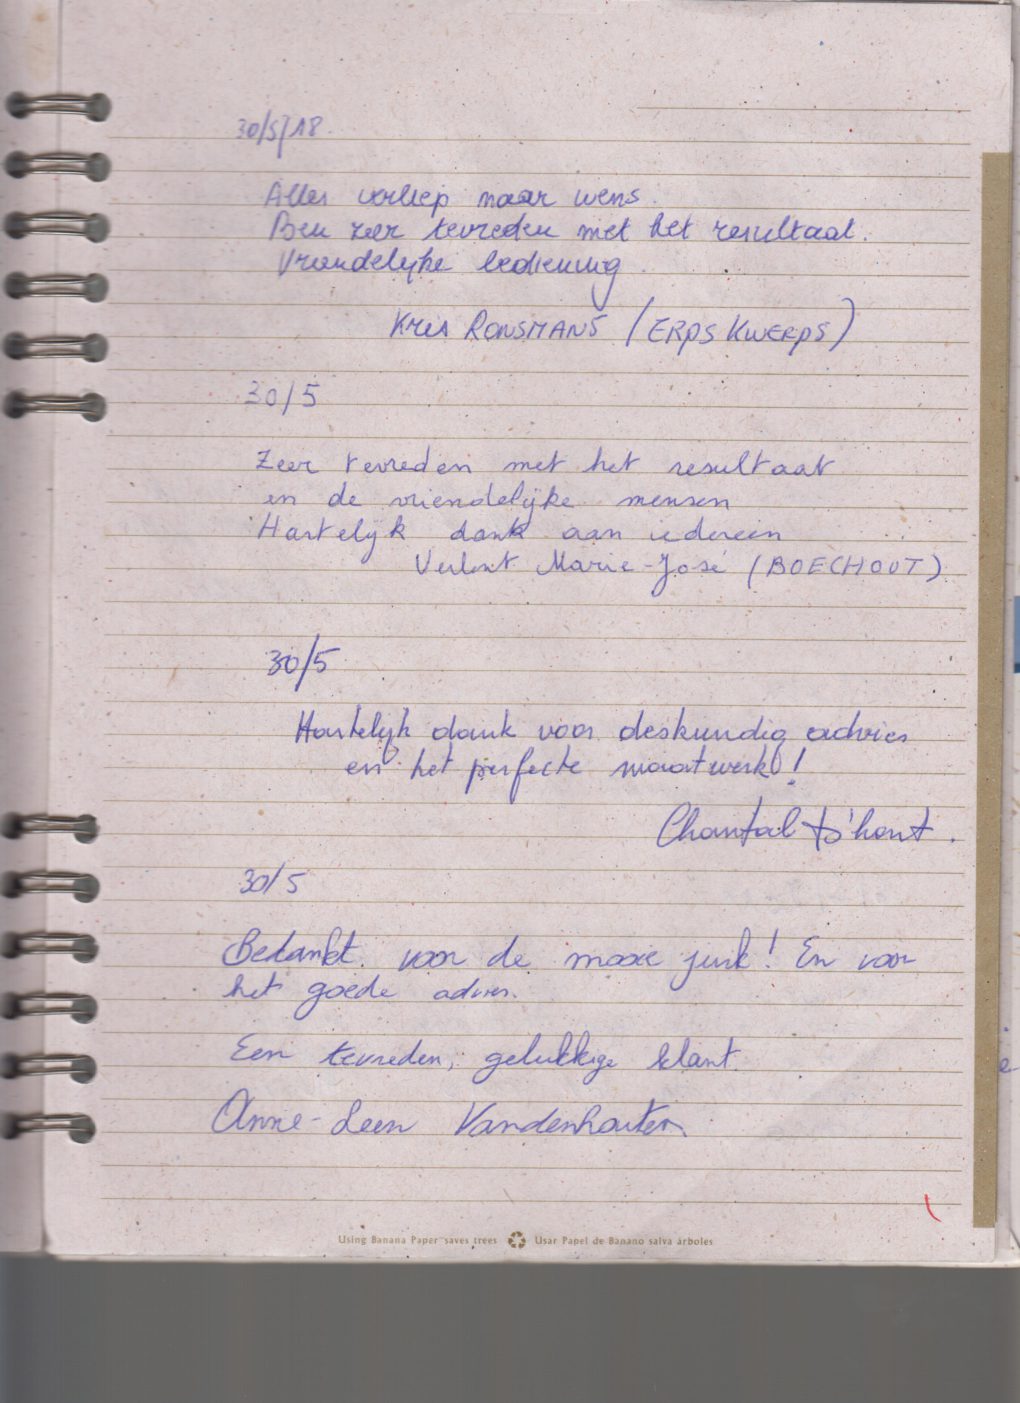 30/5/18.
Alles verliep naar wens.
Ben zeer tevreden met het resultaat.
Vriendelijke bediening.
Kris RONSMANS (ERPS KWERPS)
30/5
Zeer tevreden met het resultaat
en de vriendelijke mensen
Hartelijk dank aan iedereen
Marie-José (BOECHOUT)
30/5
Hartelijk dank voor deskundig advies
en het perfecte maatwerk!
Chantal D'hont.
30/5
Bedankt voor de mooie jurk! En voor
het goede advies.
Een tevreden, gelukkige klant.
Anne-Leen Vandenhouten
Using Banana Paper saves trees Usar Papel de Banano salva árboles